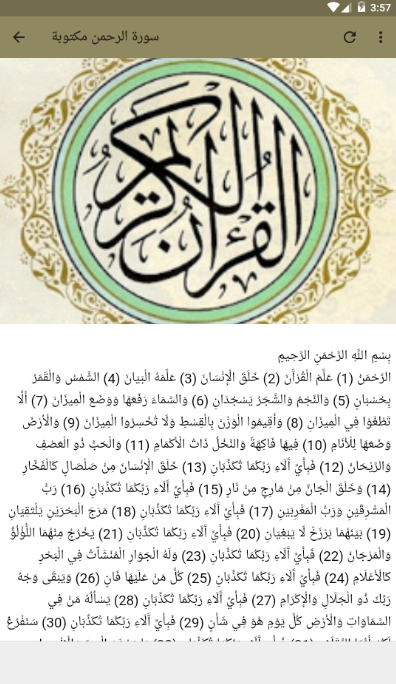 3:57
سورة الرحمن مكتوبة
القرآن الكريم
بِسْمِ اللَّهِ الرَّحْمَنِ الرَّحِيمِ
الرَّحْمَنُ (1) عَلَّمَ الْقُرْآَنَ (2) خَلَقَ الْإِنْسَانَ (3) عَلَّمَهُ الْبَيَانَ (4) الشَّمْسُ وَالْقَمَرُ
بِحُسْبَانٍ (5) وَالنَّجْمُ وَالشَّجَرُ يَسْجُدَانِ (6) وَالسَّمَاءَ رَفَعَهَا وَوَضَعَ الْمِيزَانَ (7) أَلَّا
تَطْغَوْا فِي الْمِيزَانِ (8) وَأَقِيمُوا الْوَزْنَ بِالْقِسْطِ وَلَا تُخْسِرُوا الْمِيزَانَ (9) وَالْأَرْضَ
وَضَعَهَا لِلْأَنَامِ (10) فِيهَا فَاكِهَةٌ وَالنَّخْلُ ذَاتُ الْأَكْمَامِ (11) وَالْحَبُّ ذُو الْعَصْفِ
وَالرَّيْحَانُ (12) فَبِأَيِّ آَلَاءِ رَبِّكُمَا تُكَذِّبَانِ (13) خَلَقَ الْإِنْسَانَ مِنْ صَلْصَالٍ كَالْفَخَّارِ
(14) وَخَلَقَ الْجَانَّ مِنْ مَارِجٍ مِنْ نَارٍ (15) فَبِأَيِّ آَلَاءِ رَبِّكُمَا تُكَذِّبَانِ (16) رَبُّ
الْمَشْرِقَيْنِ وَرَبُّ الْمَغْرِبَيْنِ (17) فَبِأَيِّ آَلَاءِ رَبِّكُمَا تُكَذِّبَانِ (18) مَرَجَ الْبَحْرَيْنِ يَلْتَقِيَانِ
(19) بَيْنَهُمَا بَرْزَخٌ لَا يَبْغِيَانِ (20) فَبِأَيِّ آَلَاءِ رَبِّكُمَا تُكَذِّبَانِ (21) يَخْرُجُ مِنْهُمَا اللُّؤْلُؤُ
وَالْمَرْجَانُ (22) فَبِأَيِّ آَلَاءِ رَبِّكُمَا تُكَذِّبَانِ (23) وَلَهُ الْجَوَارِ الْمُنْشَآَتُ فِي الْبَحْرِ
كَالْأَعْلَامِ (24) فَبِأَيِّ آَلَاءِ رَبِّكُمَا تُكَذِّبَانِ (25) كُلُّ مَنْ عَلَيْهَا فَانٍ (26) وَيَبْقَى وَجْهُ
رَبِّكَ ذُو الْجَلَالِ وَالْإِكْرَامِ (27) فَبِأَيِّ آَلَاءِ رَبِّكُمَا تُكَذِّبَانِ (28) يَسْأَلُهُ مَنْ فِي
السَّمَاوَاتِ وَالْأَرْضِ كُلَّ يَوْمٍ هُوَ فِي شَأْنٍ (29) فَبِأَيِّ آَلَاءِ رَبِّكُمَا تُكَذِّبَانِ (30) سَنَفْرُغُ